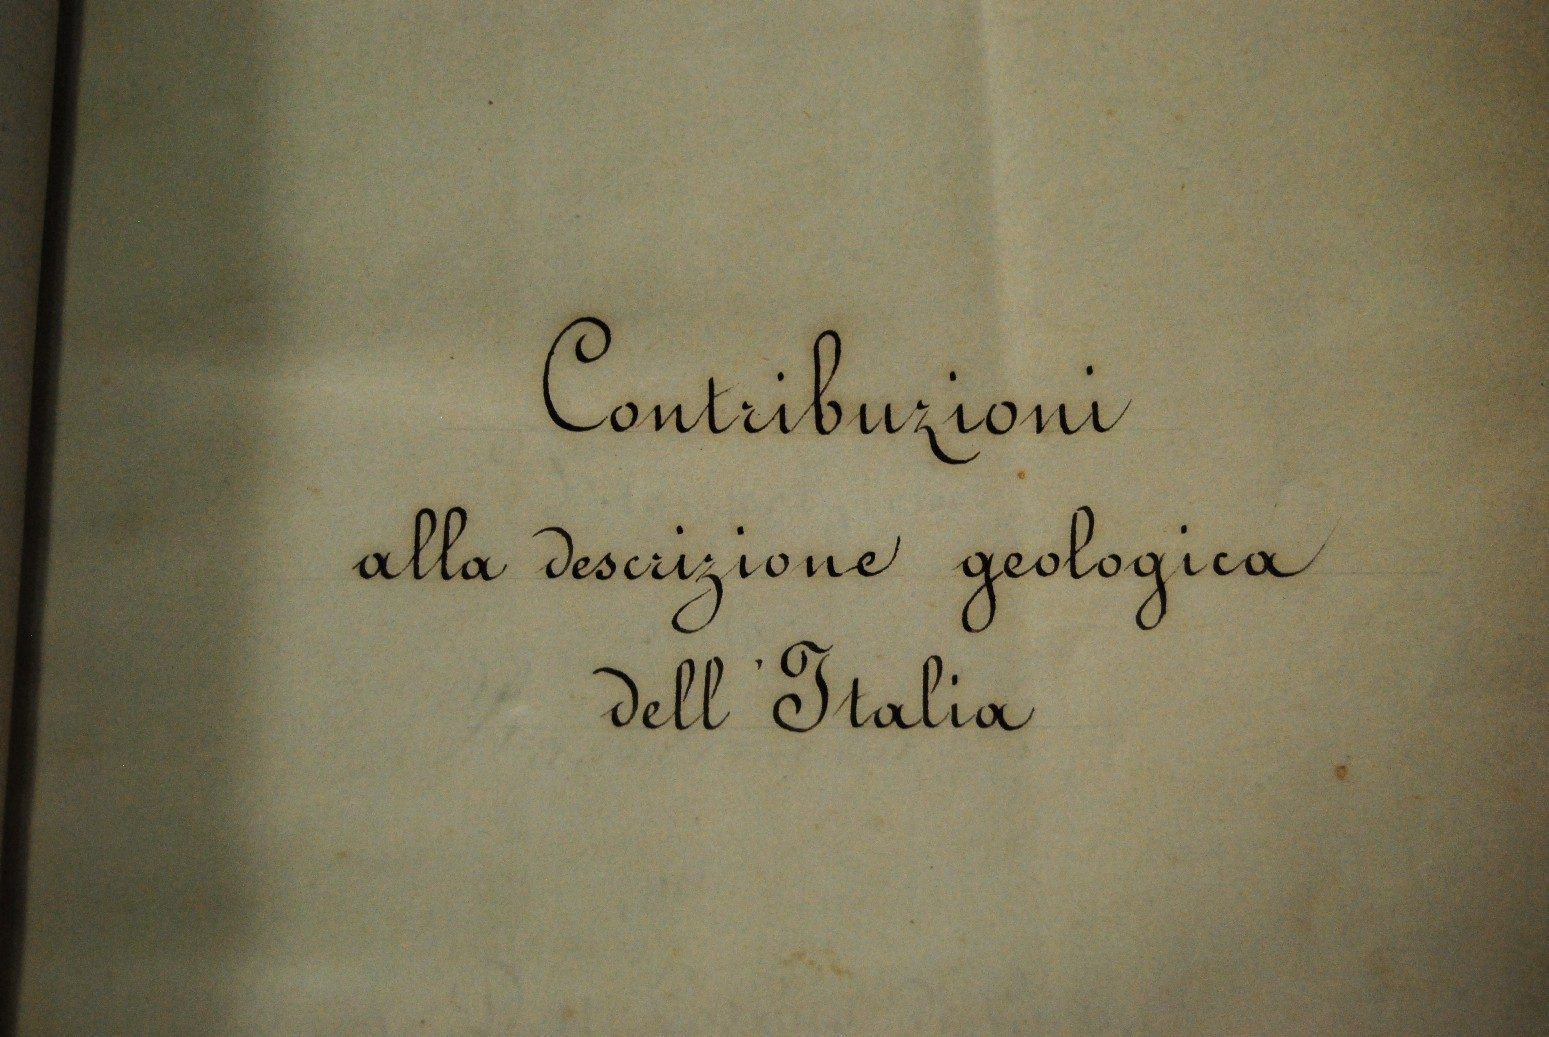 Contribuzioni
alla descrizione geologica
dell'Italia